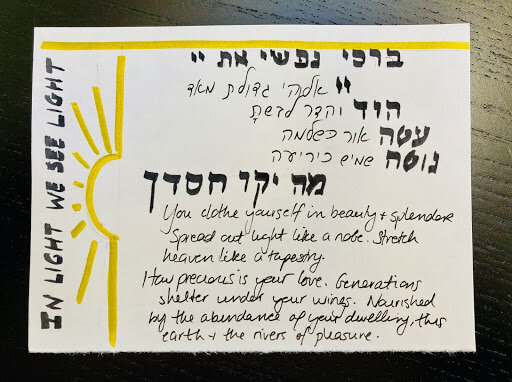 IN LIGHT WE SEE LIGHT
ברכי נפשי את יי
יי אלקי גדולת מאד
הוד והדר לבשתָ
עטה אור כשלמה
נוטה שמים כיריעה
מה יקר חסדך
You clothe yourself in beauty + splendor
Spread out light like a robe. Stretch
heaven like a tapestry.
How precious is your love. Generations
shelter under your wings. Nourished
by the abundance of your dwelling, this
earth + the rivers of pleasure.